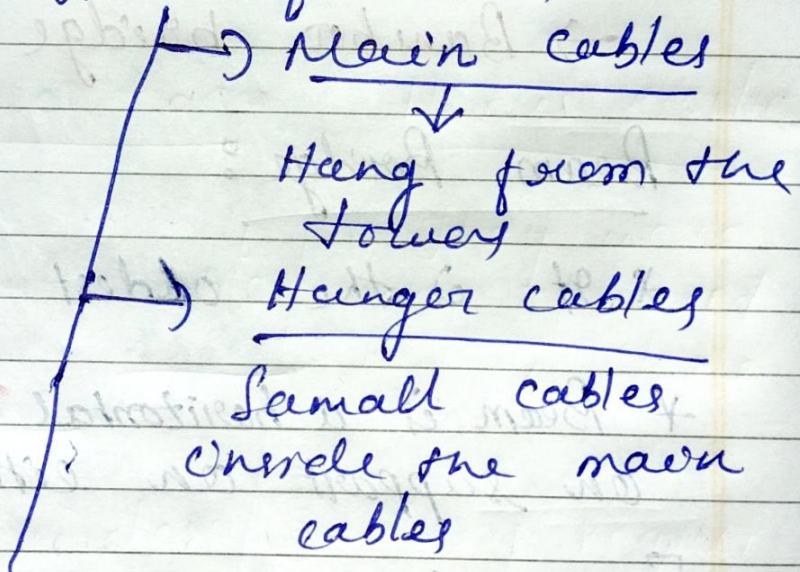 → Main cables
↓
Hang from the
towers
→ Hanger cables
Samall cables
inside the main
cables